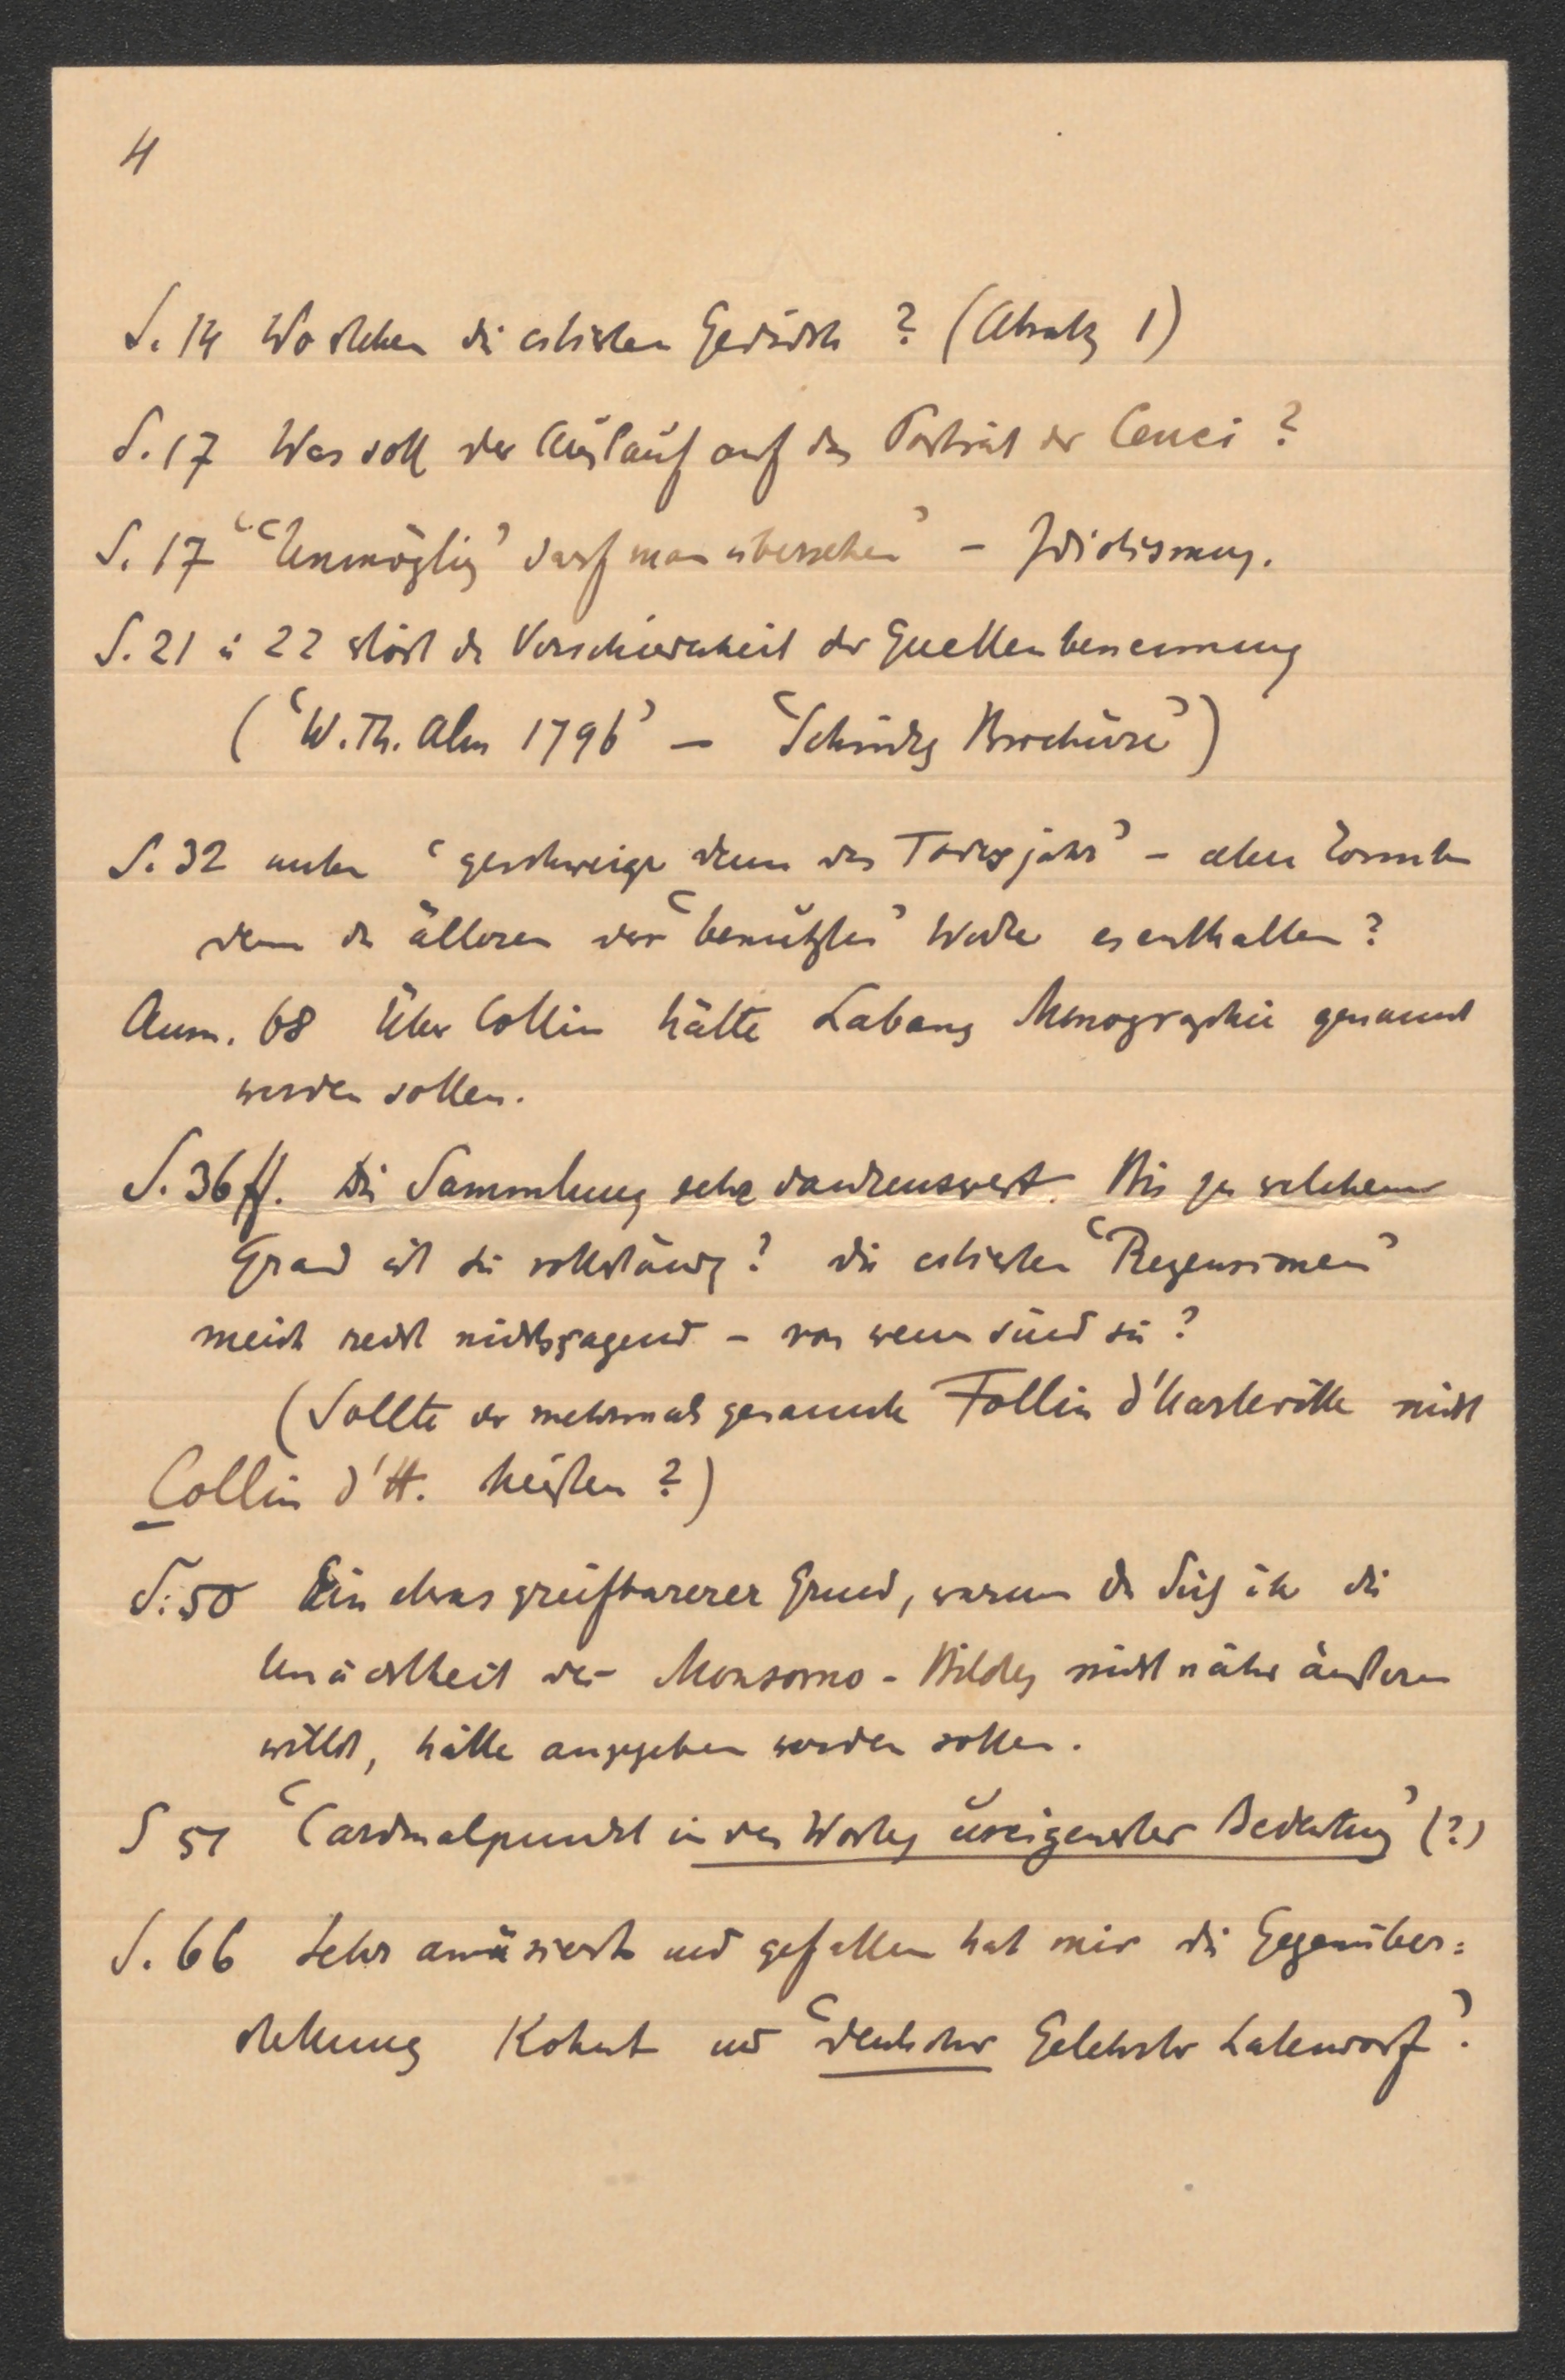 4
S. 14 Wo stehen die citierten Gedichte ? (Absatz 1)
S. 17 Was soll der Auslauf auf das Porträt der Cenci ?
S. 17 "'Unmöglich' darf man übersehen" – Idiotismus.
S. 21 u 22 stört die Verschiedenheit der Quellenbenennung
('W. Th. Alm 1796' – 'Schinks Brochüre')
S. 32 unten 'geschweige denn das Todesjahr' – aber konnten
denn die älteren der 'benützten' Werke es enthalten ?
Anm. 68 Über Collin hätte Labans Monographie genannt
werden sollen.
S. 36 ff. Die Sammlung sehr dankenswert. Bis zu welchem
Grad ist sie vollständig ? Die citierten 'Rezensionen'
meist recht nichtssagend – von wem sind sie ?
(Sollte der mehrmals genannte Follin d'Harleville nicht
Collin d'H. heißen ?)
S. 50 Ein etwas greifbarerer Grund, warum Du Dich über die
Unächtheit des Monsorno-Bildes nicht näher äußern
willst, hätte angegeben werden sollen.
S 51 'Cardinalpunkt in des Wortes ureigenster Bedeutung' (?)
S. 66 Sehr amüsiert und gefallen hat mir die Gegenüber=
stellung Kohut und 'deutscher Gelehrter Latendorf'.